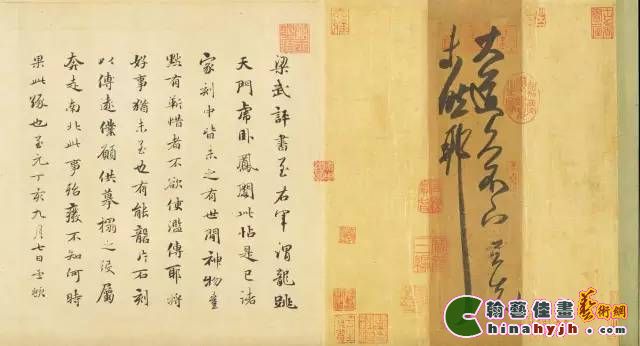 大道久不下與先
未然耶
梁武評書至右軍謂龍跳
天門虎臥鳳閣此帖是已諸
家刻中皆未之有世間神物豈
默有靳惜者不欲使濫傳耶將
好事猶未至也有能礱片石刻
以傳遠僕願供摹搨之役屬
奔走南北此事殆廢不知何時
果此緣也至元丁亥九月七日孟頫
翰藝佳畫藝術網
Chinahyjh.com